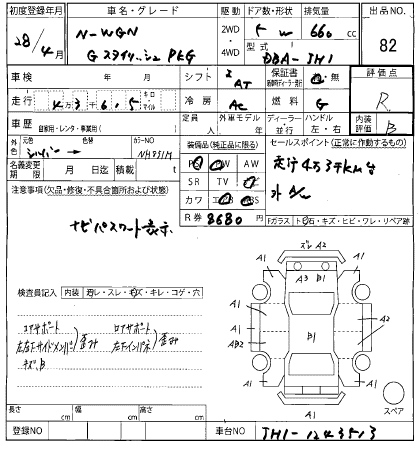 初度登録年月 車名・グレード 駆動 ドア数・形状 排気量 出品NO.
28/4月 N-WGN 2WD 5 W 660 cc 82
Gスタイリッシュ PKG 4WD 型式 DBA-JH1
車検 年 月 シフト AT 保証書 有・無 評価点
走行 4万3千6 5 キロ マイル 冷房 AC 燃料 G R
車歴 自家用・レンタ・事業用( ) 定員 人 外車モデル 年 ディーラー・並行 ハンドル 左・右 内装評価 B
外色 元色 シルバー 色替 カラーNO NH851M 装備品(純正品に限る) セールスポイント(正常に作動するもの)
名義変更期限 月 日迄 積載 t PS PW AW 走行4万3千km台
注意事項(欠品・修復・不具合箇所および状態) SR TV ナビ 外A/W
カワ エアB ABS
ナビパスワード表示 R券 8680円 Fガラス トビ石・キズ・ヒビ・ワレ・リペア跡
検査員記入 内装 ヨゴレ・スレ・キズ・キレ・コゲ・穴
コアサポート
左右FサイドメンバN
歪み
ロアサポート
左Fインパネ
歪み
キズ、B
ズレ A2
A1 A3 B1 A1
A1 A1
A1 B1 A2
AB2
A1 A1
A1
スペア
長さ cm 幅 cm 高さ cm
登録NO 車台NO JH1-1243513